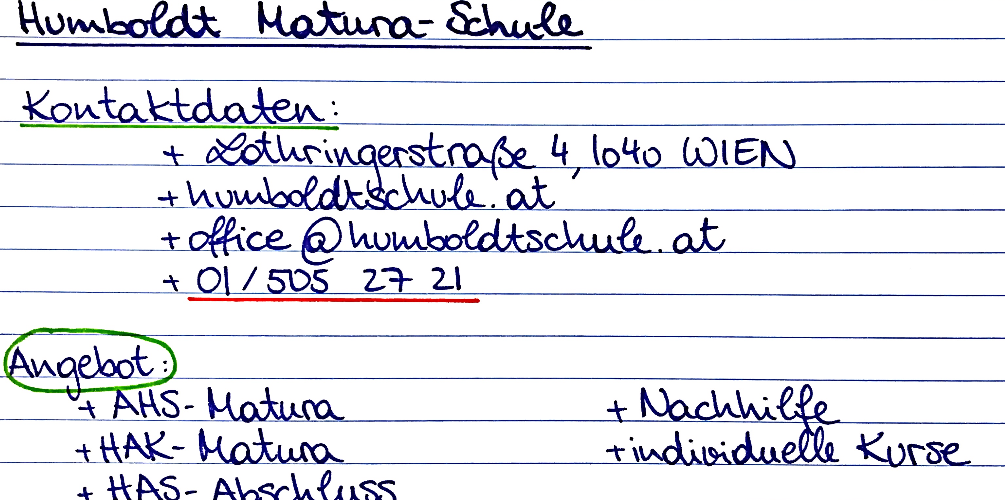 Humboldt Matura-Schule
Kontaktdaten:
+ Lothringerstraße 4, 1040 WIEN
+ humboldtschule.at
+ office@humboldtschule.at
+ 01/505 27 21
Angebot:
+ AHS-Matura
+ Nachhilfe
+ HAK-Matura
+ individuelle Kurse
+ HAS-Abschluss